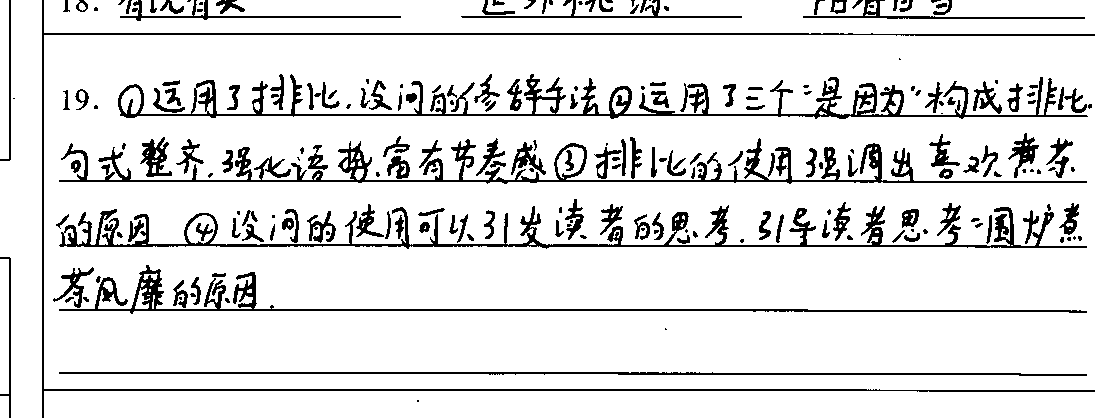 18. 有说有笑 世外桃源 阳春白雪
19. ①运用了排比.设问的修辞手法②运用了三个"是因为"构成排比.
句式整齐.强化语势.富有节奏感③排比的使用强调出喜欢煮茶
的原因 ④设问的使用可以引发读者的思考.引导读者思考"围炉煮
茶风靡的原因.